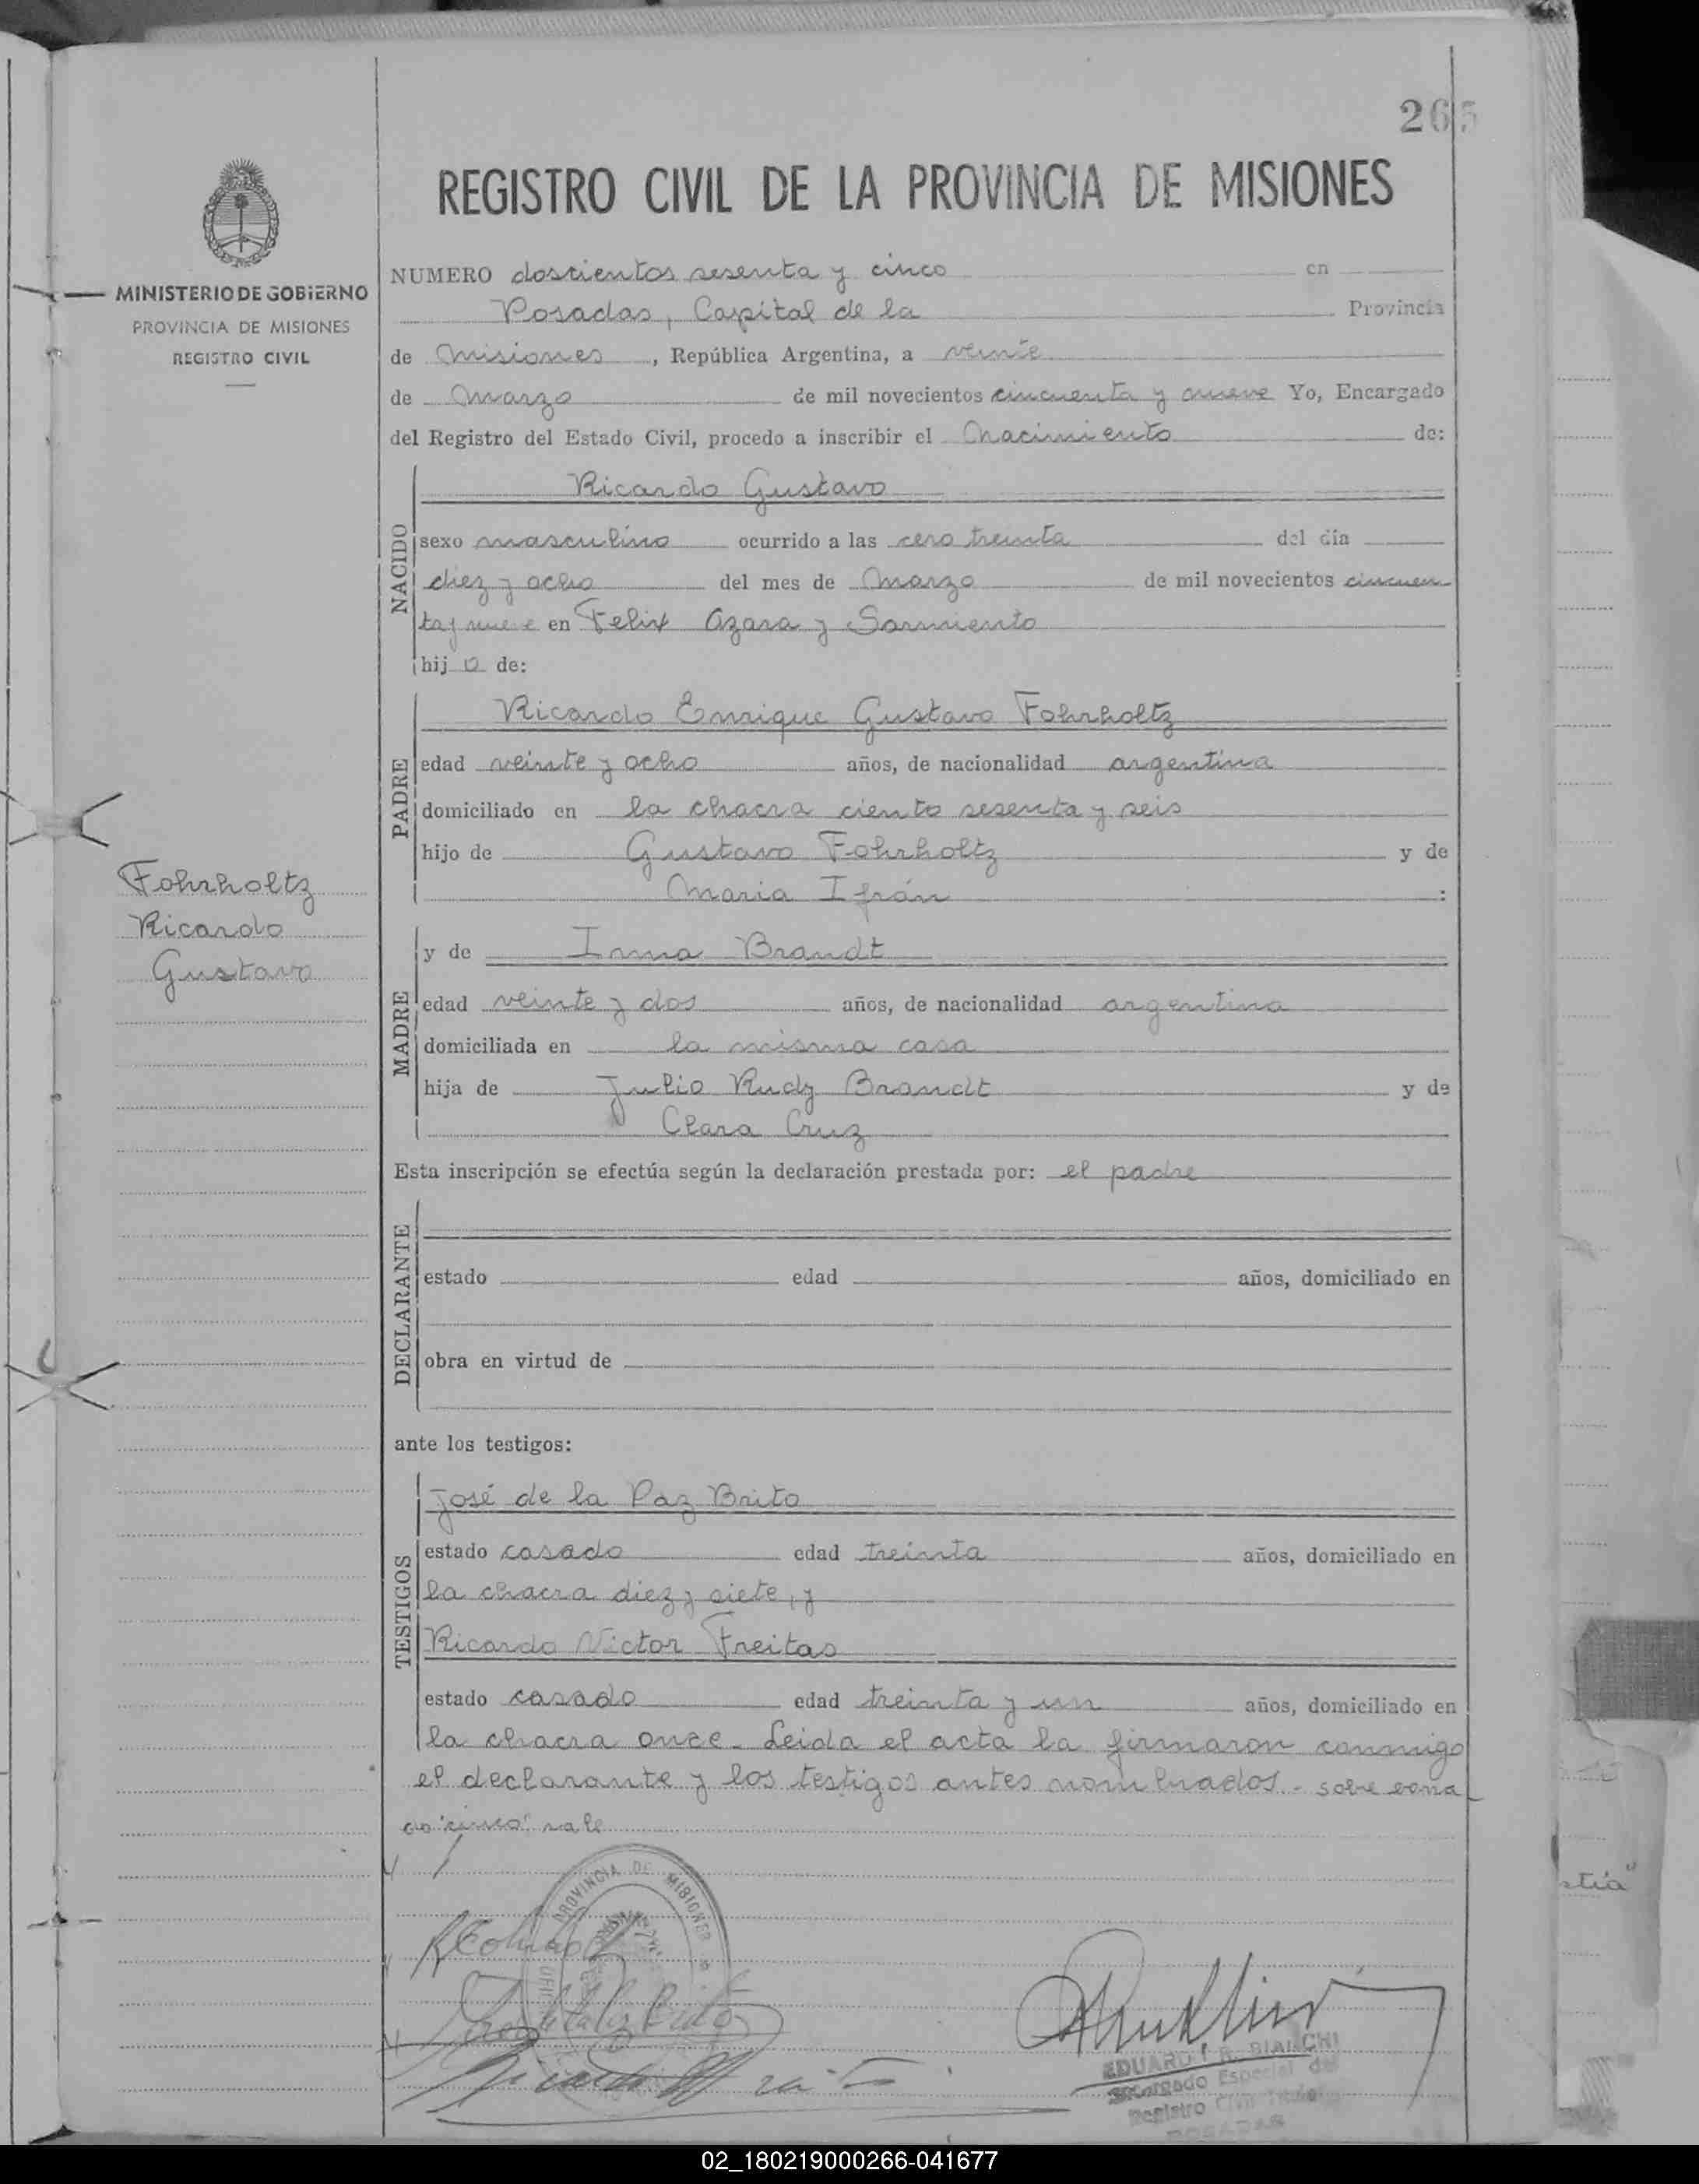 265
REGISTRO CIVIL DE LA PROVINCIA DE MISIONES
MINISTERIO DE GOBIERNO
PROVINCIA DE MISIONES
REGISTRO CIVIL
NUMERO doscientos sesenta y cinco en
Posadas, Capital de la Provincia
de Misiones, República Argentina, a veinte
de Marzo de mil novecientos cincuenta y nueve Yo, Encargado
del Registro del Estado Civil, procedo a inscribir el Nacimiento de:
NACIDO
Ricardo Gustavo
sexo masculino ocurrido a las cero treinta del día
diez y ocho del mes de Marzo de mil novecientos cincuen
ta y nueve en Felix Azara y Sarmiento
hijo de:
PADRE
Ricardo Enrique Gustavo Fohrholtz
edad veinte y ocho años, de nacionalidad argentina
domiciliado en la chacra ciento sesenta y seis
hijo de Gustavo Fohrholtz y de
Maria Ifrán :
Fohrholtz
Ricardo
Gustavo
MADRE
y de Irma Brandt
edad veinte y dos años, de nacionalidad argentina
domiciliada en la misma casa
hija de Julio Rudy Brandt y de
Clara Cruz
Esta inscripción se efectúa según la declaración prestada por: el padre
DECLARANTE
estado edad años, domiciliado en
obra en virtud de
ante los testigos:
TESTIGOS
José de la Paz Brito
estado casado edad treinta años, domiciliado en
la chacra diez y siete, y
Ricardo Victor Freitas
estado casado edad treinta y un años, domiciliado en
la chacra once. Leida el acta la firmaron conmigo
el declarante y los testigos antes nombrados.- sobre borra
do "cinco" vale
PROVINCIA DE MISIONES
EDUARDO R. BIANCHI
Encargado Especial del
Registro Civil
POSADAS
02_180219000266-041677